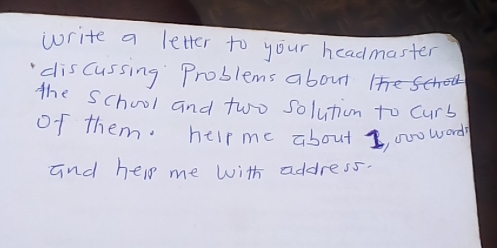 write a letter to your headmaster
discussing problems about the School
the school and two solution to curb
of them. help me about 1,000 words
and help me with address.